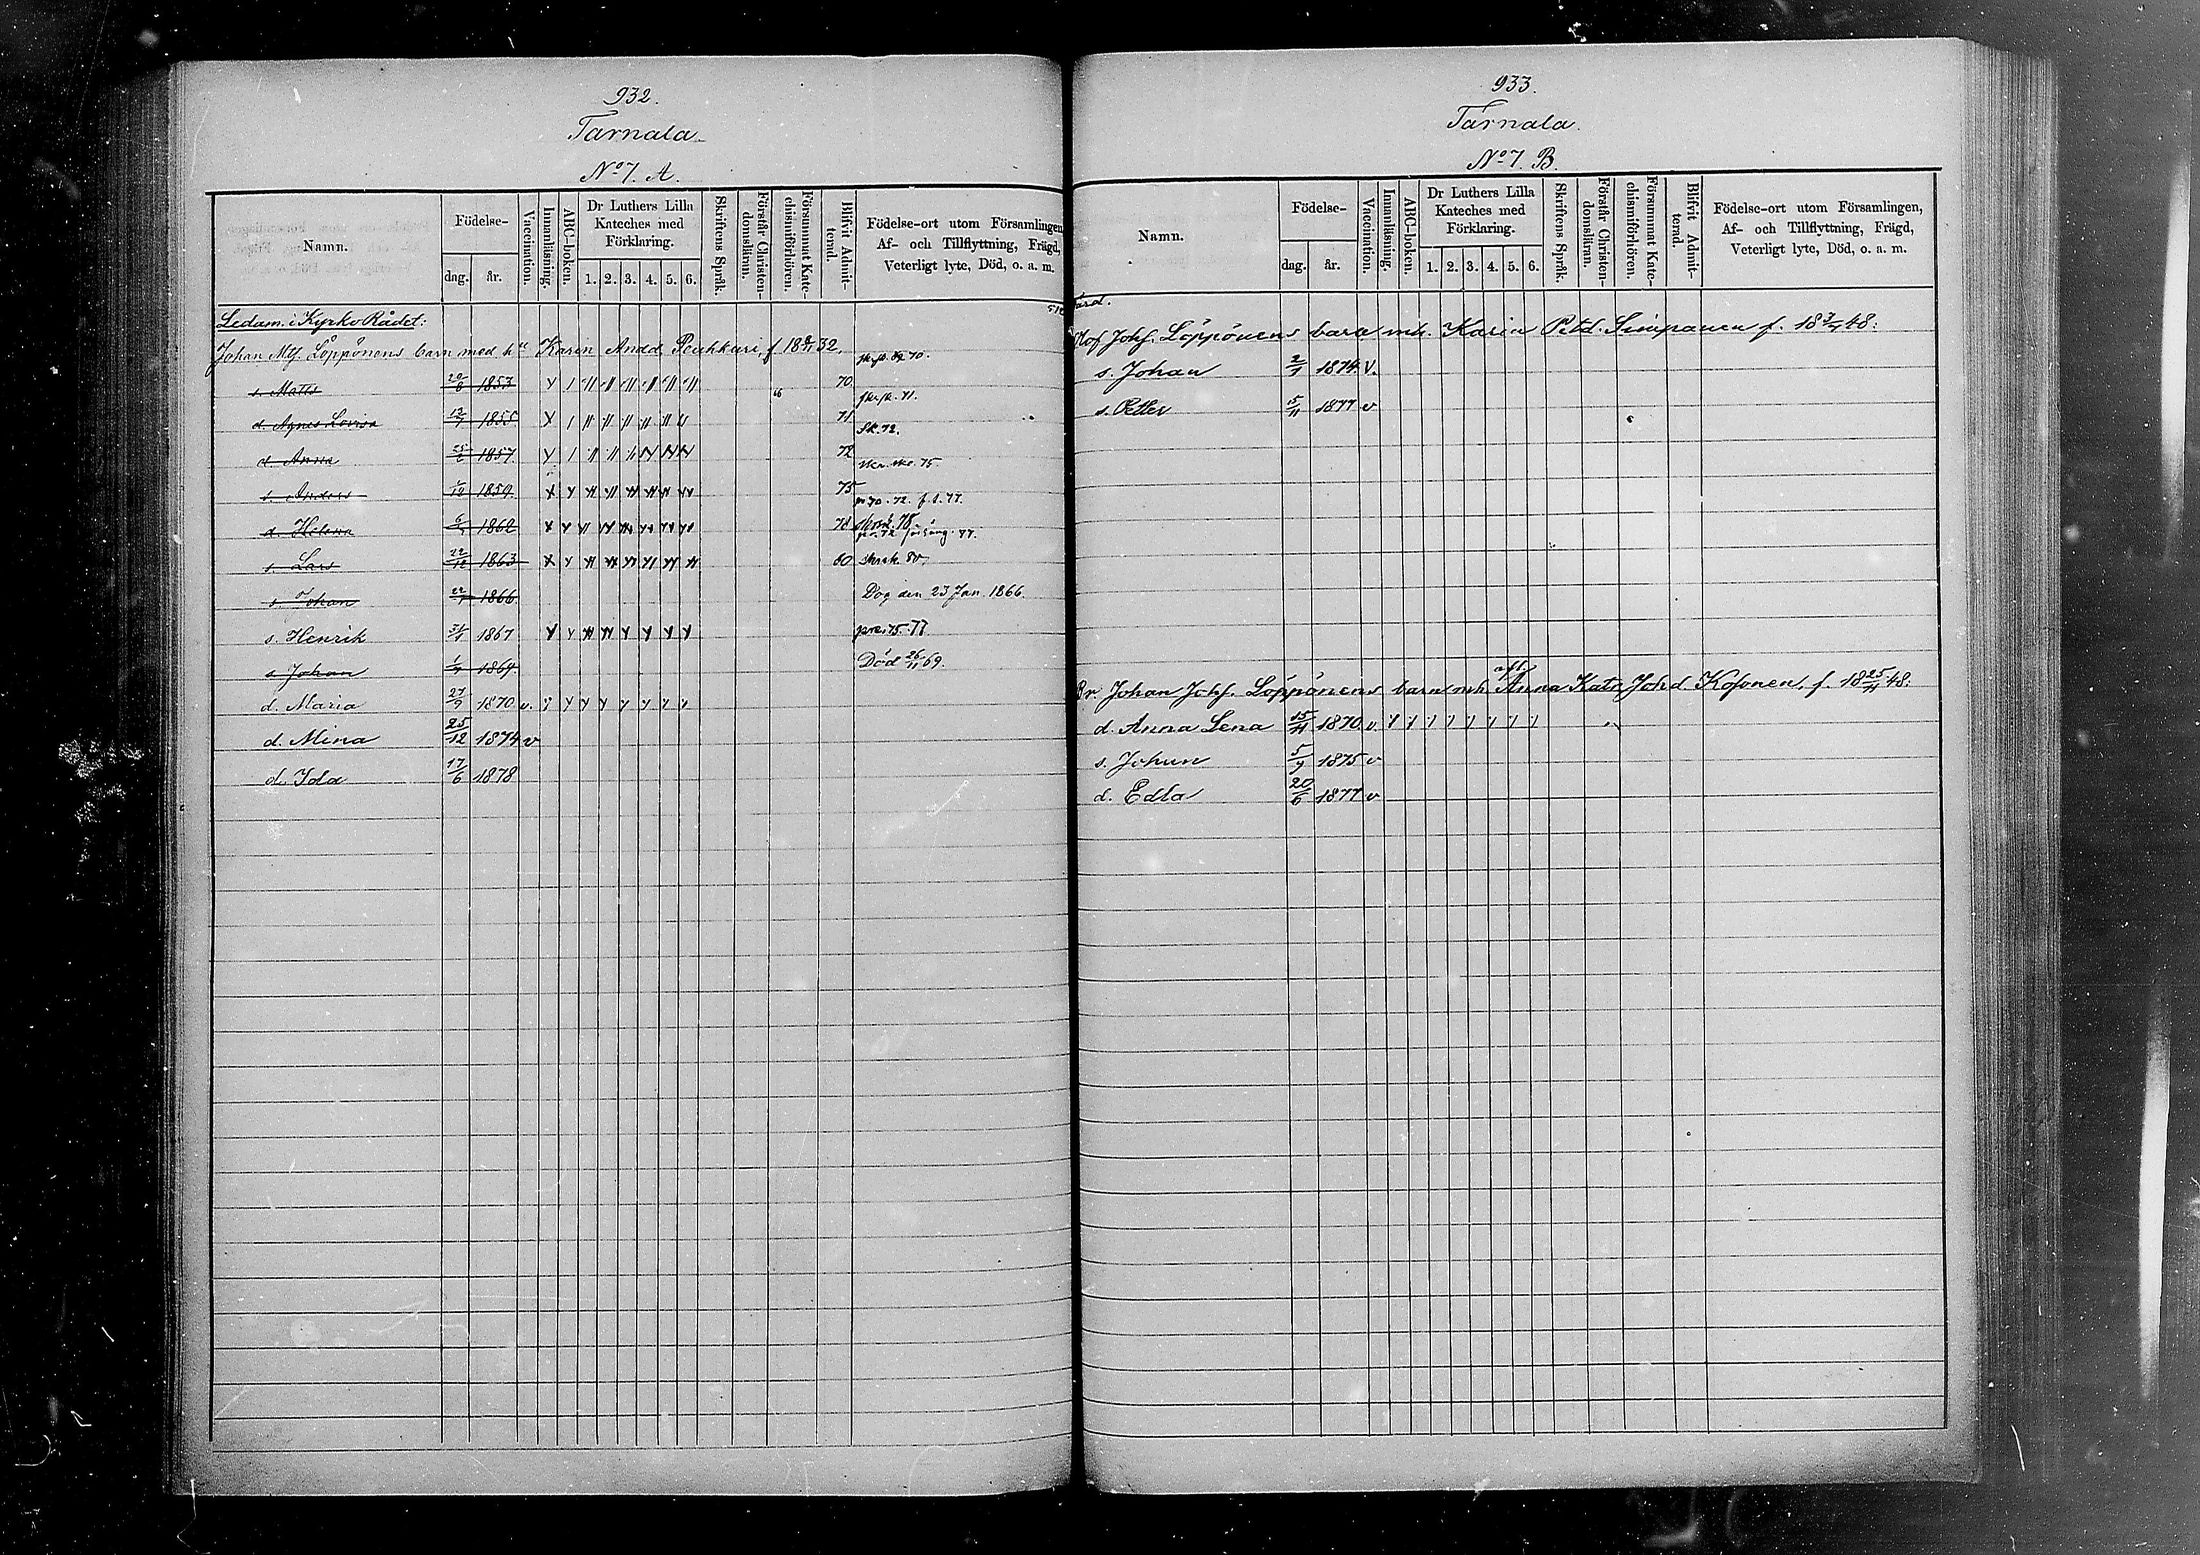 932.
Tarnala
No 7. A.
Namn.
Födelse-
dag. år.
Vaccination.
Innanläsning.
ABC-boken.
Dr Luthers Lilla Kateches med Förklaring.
1. 2. 3. 4. 5. 6.
Skriftens Språk.
Förstår Christendomslärnn.
Försummat Katechismiförhören.
Blifvit Admitterad.
Födelse-ort utom Församlingen,
Af- och Tillflyttning, Frägd,
Veterligt lyte, Död, o. a. m.
Ledam. i Kyrko Rådet:
Johan Mtf. Löppönens barn med hu Karin Andd Peuhkuri, f 18 8/11 32.
s. Matts 20/6 1853 70.
d. Agnes Lovisa 1855 71
d. Anna 25/2 1857 72
Sk. 72.
s. Anders 1859 75
d. Helena 6/7 1862 78
s. Lars 22/12 1863 80
s. Johan 22/1 1866 Dog den 23 Jan. 1866.
s. Henrik 31/1 1867
s. Johan 1/7 1869 Död 26/11 69.
d. Maria 27/7 1870 v.
d. Mina 25/12 1874 v
d. Ida 17/6 1878
933.
Tarnala.
No 7. B.
Namn.
Födelse-
dag. år.
Vaccination.
Innanläsning.
ABC-boken.
Dr Luthers Lilla Kateches med Förklaring.
1. 2. 3. 4. 5. 6.
Skriftens Språk.
Förstår Christendomslärnn.
Försummat Katechismiförhören.
Blifvit Admitterad.
Födelse-ort utom Församlingen,
Af- och Tillflyttning, Frägd,
Veterligt lyte, Död, o. a. m.
Johf. Löppönens barn mh. Karin Petd. Simpanen f. 18 3/4 48:
s. Johan 2/1 1874 v.
s. Petter 15/11 1877 v
Br. Johan Johf. Löppönens barn mh. Anna Kata Johd. Kosonen, f. 18 25/11 48:
d. Anna Lena 15/11 1870 v.
s. Johan 5/9 1875 v
d. Edla 20/6 1877 v